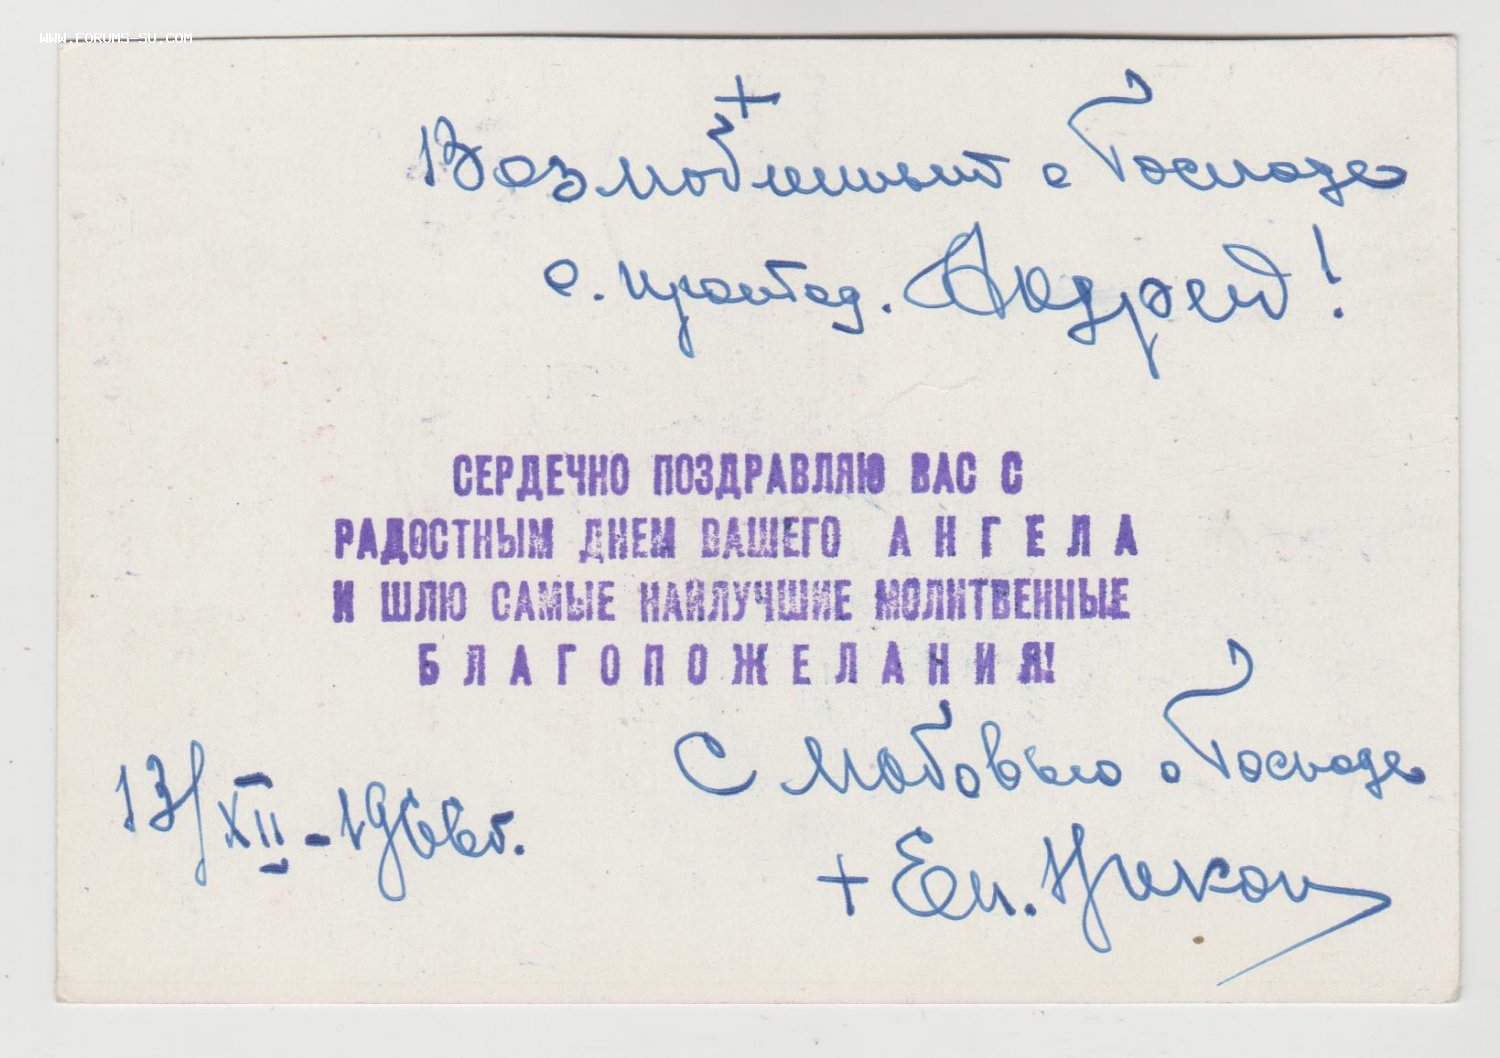 WWW.FORUMS-SU.COM
+
Возлюбленный о Господе
о. протод. Андрей!
СЕРДЕЧНО ПОЗДРАВЛЯЮ ВАС С
РАДОСТНЫМ ДНЕМ ВАШЕГО АНГЕЛА
И ШЛЮ САМЫЕ НАИЛУЧШИЕ МОЛИТВЕННЫЕ
БЛАГОПОЖЕЛАНИЯ!
С любовью о Господе
13/XII-1966г.
+ Еп. Никон